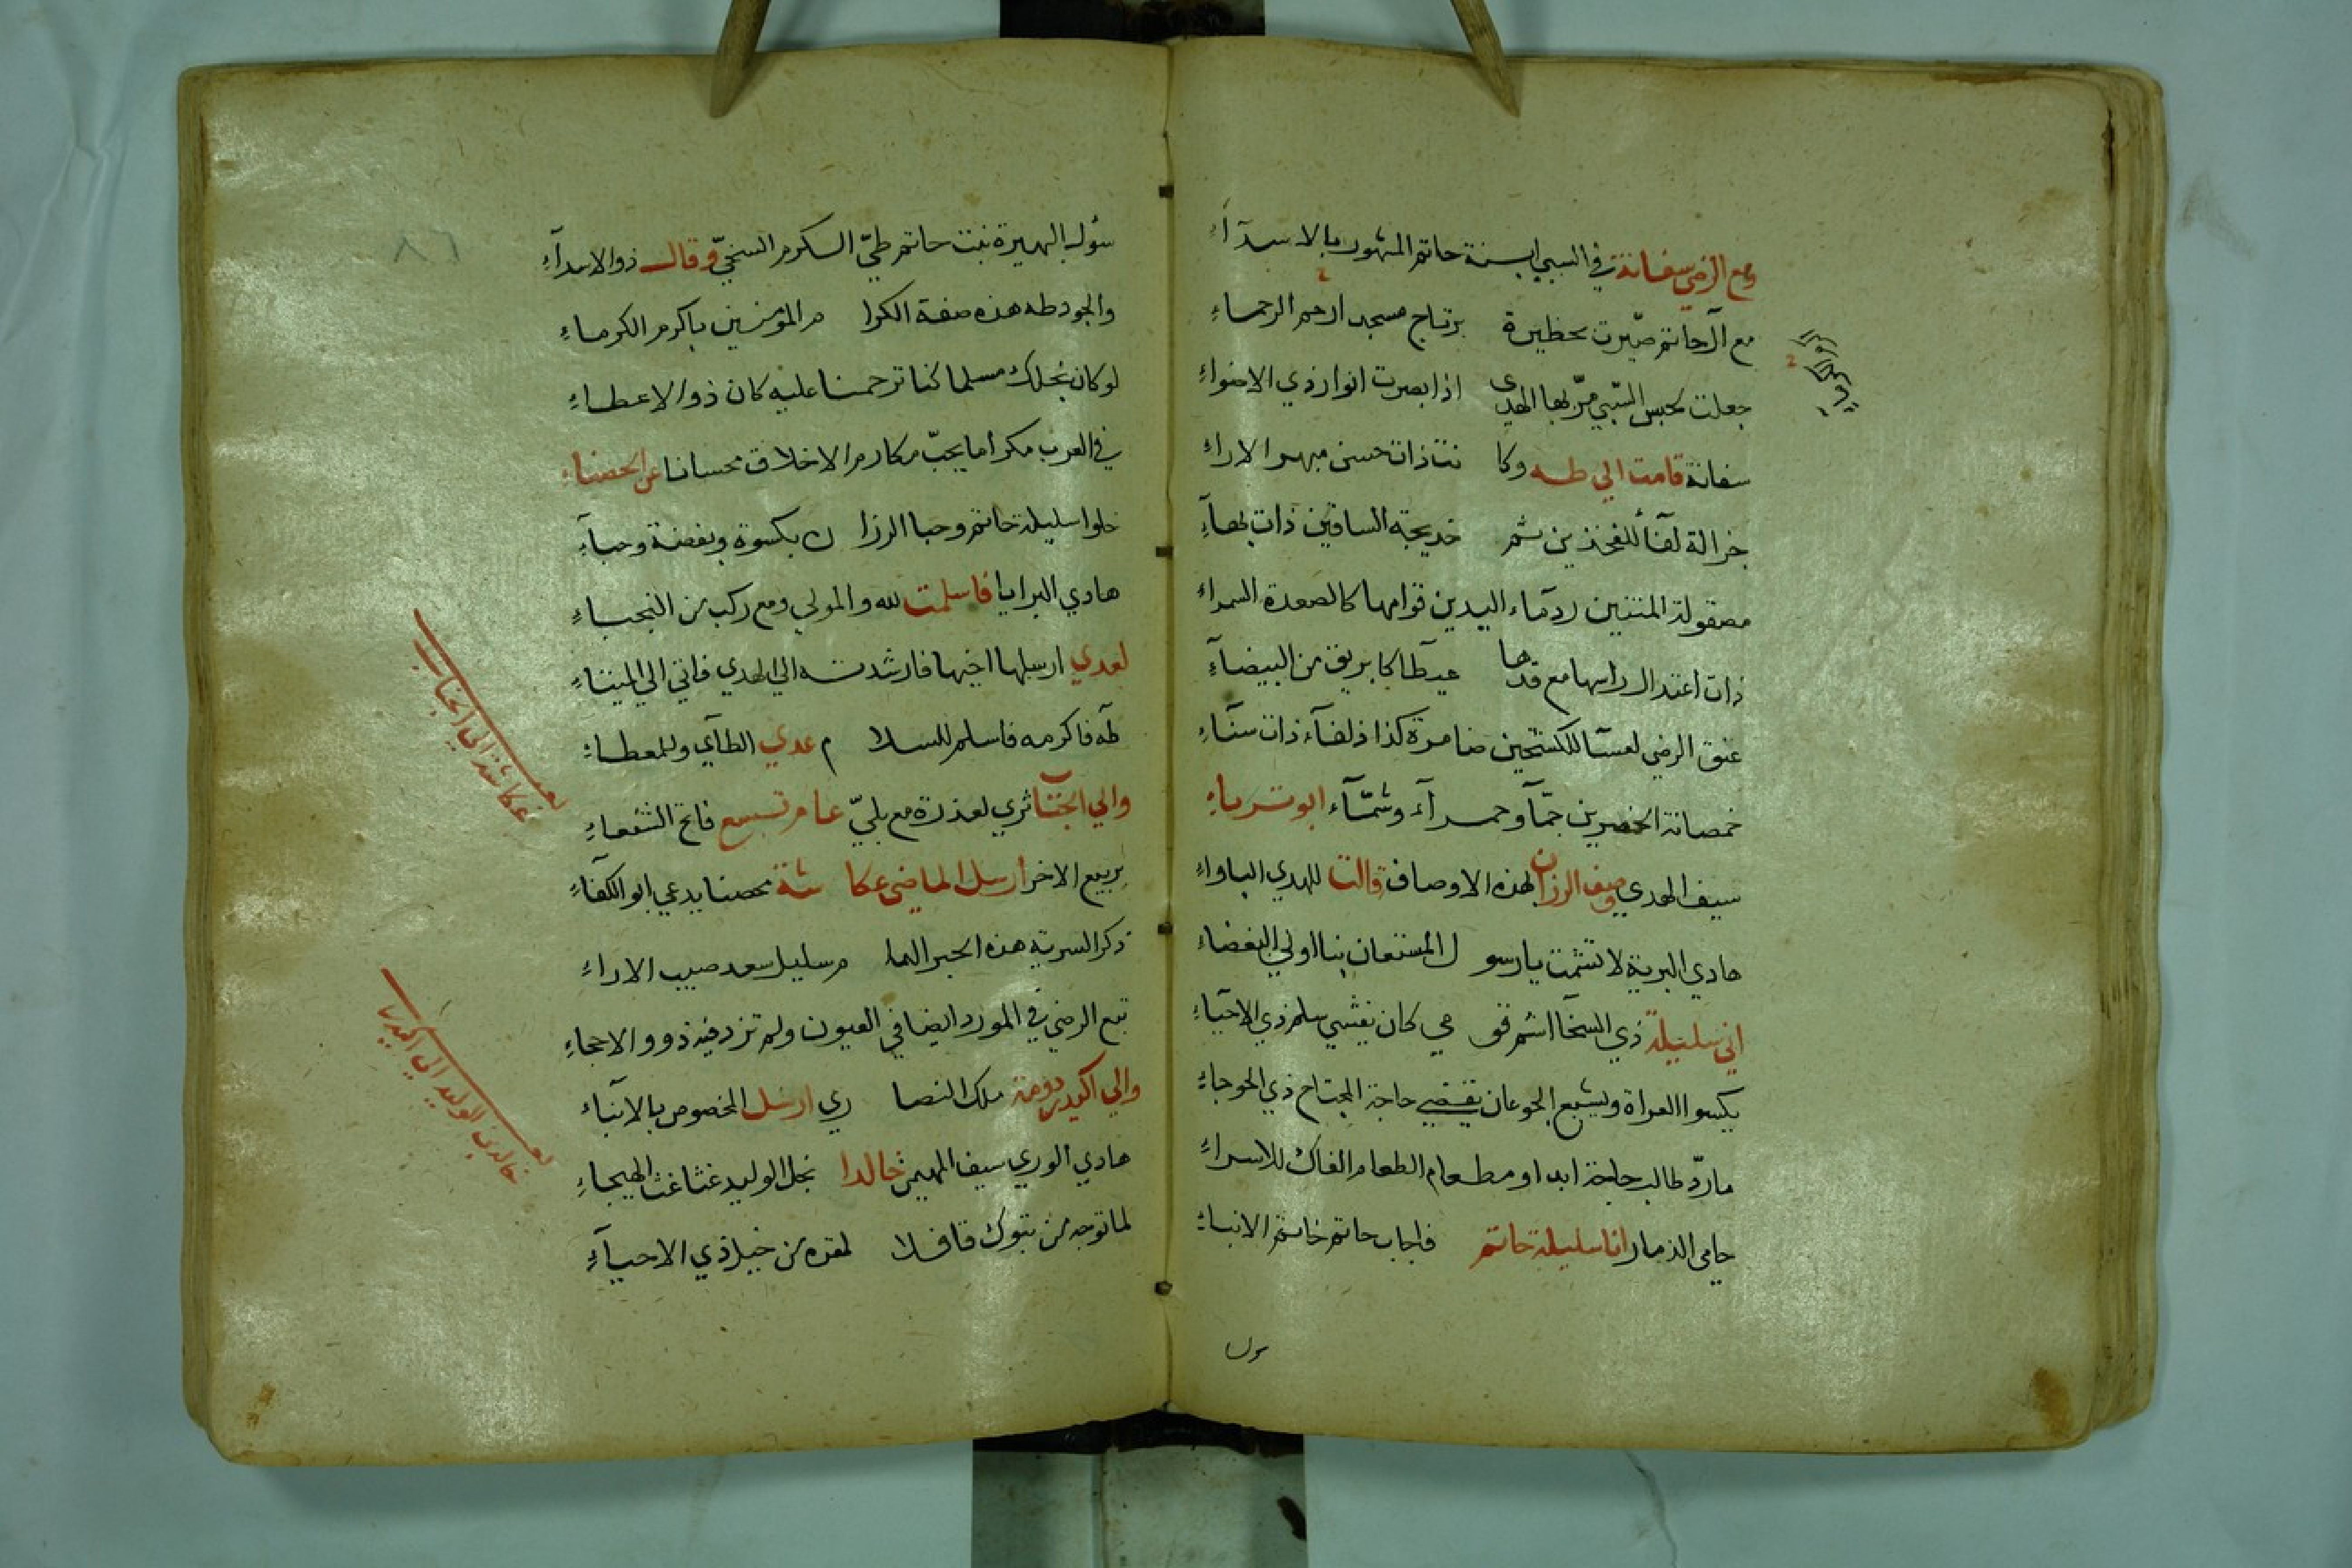 ومع الرضي سفانة في السبي ابنة حاتم المشهور بالاسدآء
مع آل حاتم صيرت بحظيرة برتاج مسجد ارحم الرحماء
جعلت بحبس السبي مر بها الهدى اذ ابصرت انوار ذي الاضواء
سفانة قامت الي طه وكا نت ذات حسن مبهر الاراء
خزالة لفآ للفخذين ثم خديجة الساقين ذات بهآء
مصقولة المتنين ردمآء اليدين قوامها كالصعدة السمراء
ذات اعتدال راسها مع قدها عيطآ كابريق من البيضآء
عنق الرضي لعسآ للكشحين ضامرة كذا ذلفآء ذات سنآء
خمصانة الخصرين جمآ وحمرآء وشمآء ابو ترباء
سيف الهدي وصف الرزان بهذه الاوصاف قالت للهدي الباواء
هادي البرية لا تشمت يا رسو ل المستعان بنا اولي البغضاء
اني سليلة ذي السخآ اشم قو مي كان يفشي سلم ذي الاحيآء
يكسوا العراة ويشبع الجوعان يقضي حاجة المجتاح ذي الحوجاء
ما رد طالب حاجة ابدا ومطعام الطعام الفاك للاسراء
حامي الذمار انا سليلة حاتم فاجاب حاتم خاتم الانباء
سؤل
سؤل الهيرة بنت حاتم طي السكرم السخي وقال ذو الاسدآء
والجود طه هذه صفة الكرا م المؤمنين باكرم الكرماء
لو كان نجلك مسلما كنا ترحمنا عليه كان ذو الاعطاء
في العرب مكراما يحب مكارم الاخلاق محسانا عن الحضناء
خلوا سليلة حاتم وحبا الرزا ن بكسوة وبفضة وحبآء
هادي البرايا فاسلمت لله والمولي ومع ركب من النجباء
لعدي ارسلها اخيها فارشدته الي الهدي فاتي الي الميثاء
طه فاكرمه فاسلم للسلا م عدي الطآي وللمعطاء
والي الجناب ثري لعذرة مع بلي عام تسبيع فاتح الشفعاء
بربيع الاخر ارسل الماضي عكا شة محصنا يدعي ابو الكفآء
ذكر السرية هذه الحبر الهما م سليل سعد صيب الاراء
تبع الرضي في المورد ايضا في العيون ولم تزد فيه ذوو الاحجاء
والي اكيدر دومة ملك النصا ري ارسل المخصوص بالانبآء
هادي الوري سيف المهيمن خالدا نجل الوليد غثاغث الهيجاء
لما توجه من تبوك قافلا لمقره من خيل ذي الاحيآء
بعث عكاشة الي الجناب
بعث خالد بن الوليد الي اكيدر
٨٦